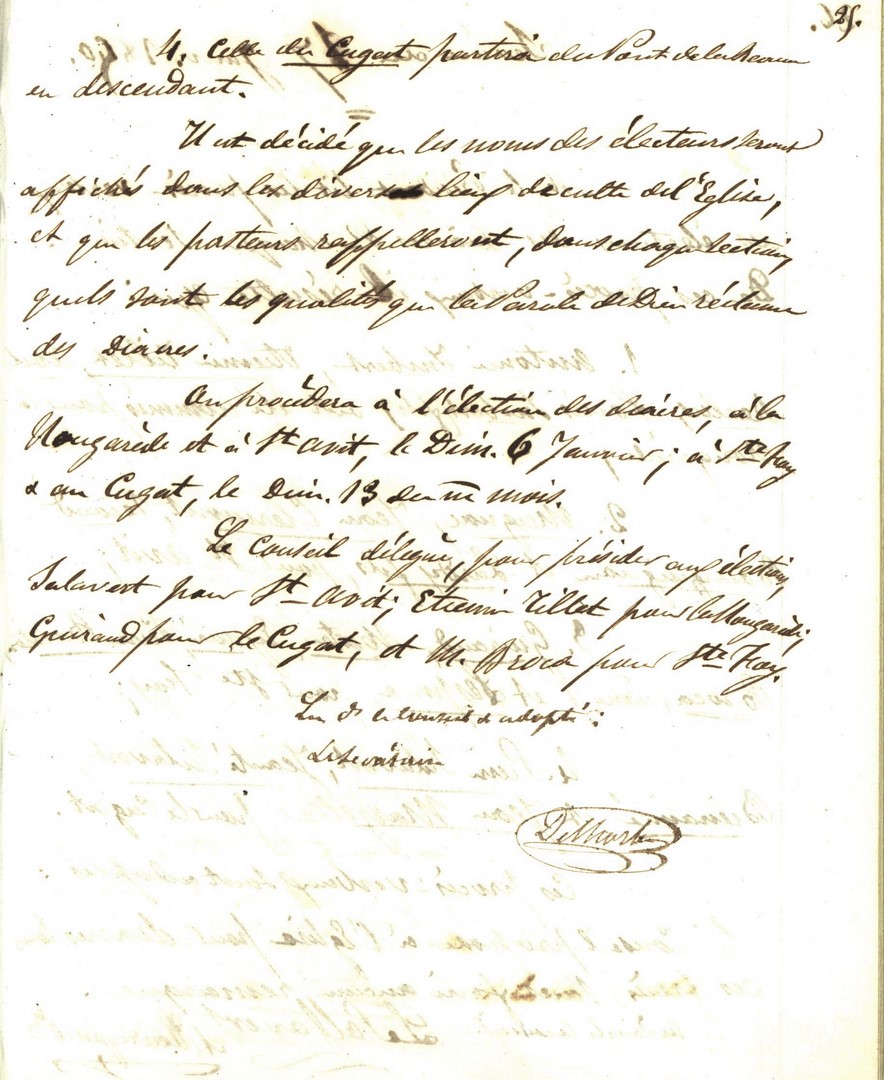 25.
4. Celle du Cugat partira du Pont de la Beaume
en descendant.
Il est décidé que les noms des électeurs seront
affichés dans les divers lieux de culte de l'Eglise,
et que les pasteurs rappelleront, dans chaque section,
quels sont les qualités que la Parole de Dieu réclame
des Diacres.
On procèdera à l'élection des diacres, à la
Nougarède et à St avit, le Dim. 6 Janvier; à Ste Foy
& au Cugat, le dim. 13 du m mois.
Le Conseil délègue, pour présider aux élections,
Salavert pour St avit; Etienne Tillet pour la Nougarède;
Guiraud pour le Cugat, et M. Broca pour Ste Foy.
Lu d le conseil & adopté:
Le Secrétaire